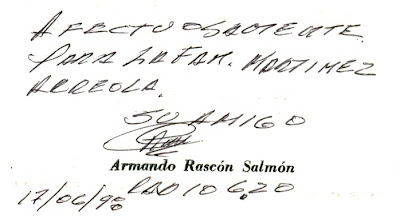 AFECTUOSAMENTE.
PARA LA FAM. MARTINEZ
ARREOLA.
SU AMIGO
Armando Rascón Salmón
RADIO 620
17/06/98